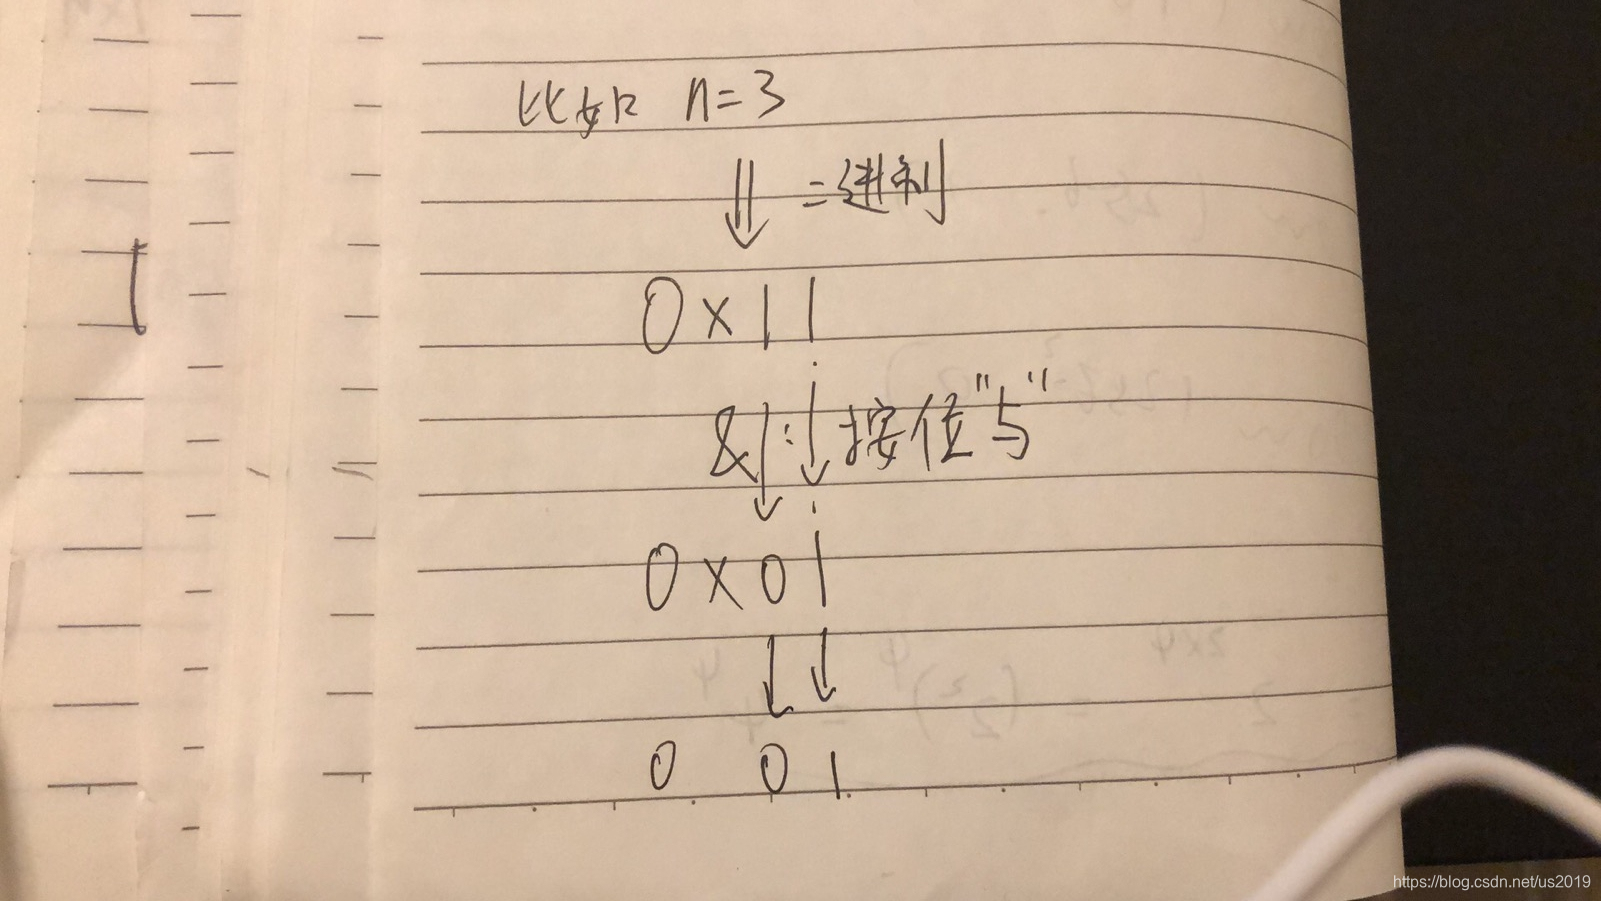 比如 n=3
二进制
0x11
& 按位"与"
0x01
0 0 1
https://blog.csdn.net/us2019